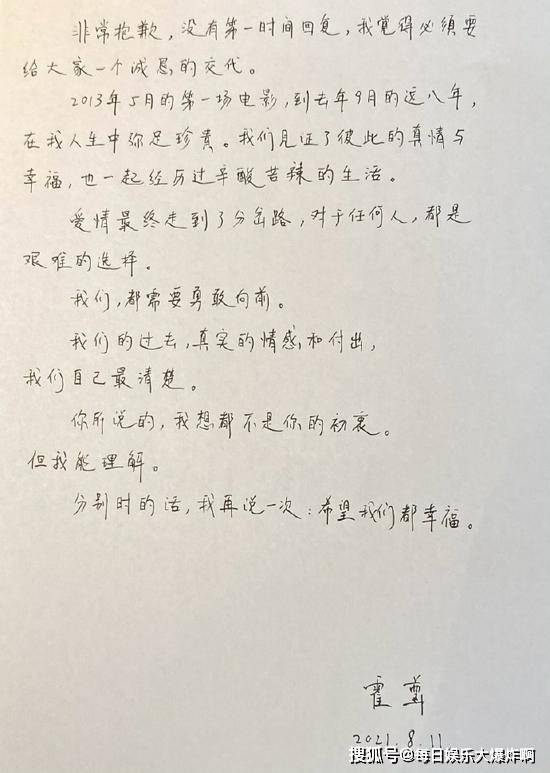 非常抱歉，没有第一时间回复，我觉得必须要
给大家一个诚恳的交代。
2013年5月的第一场电影，到去年9月的这八年，
在我人生中弥足珍贵。我们见证了彼此的真情与
幸福，也一起经历过辛酸苦辣的生活。
爱情最终走到了分岔路，对于任何人，都是
艰难的选择。
我们，都需要勇敢向前。
我们的过去，真实的情感和付出，
我们自己最清楚。
你所说的，我想都不是你的初衷。
但我能理解。
分别时的话，我再说一次：希望我们都幸福。
霍尊
2021.8.11
搜狐号@每日娱乐大爆炸啊